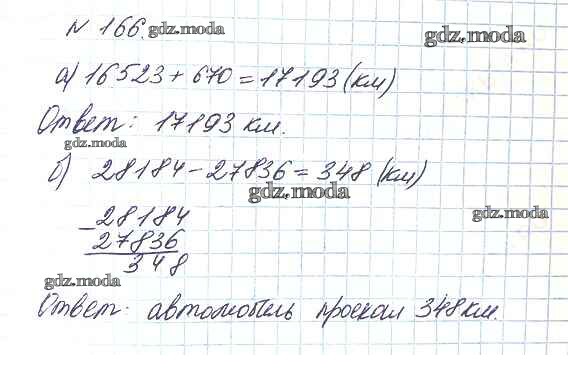 N 166. gdz.moda
gdz.moda
а) 16523 + 670 = 17193 (км)
Ответ: 17193 км.
gdz.moda
б) 28184 - 27836 = 348 (км)
gdz.moda
- 28184
gdz.moda
27836
348
gdz.moda
Ответ: автомобиль проехал 348 км.